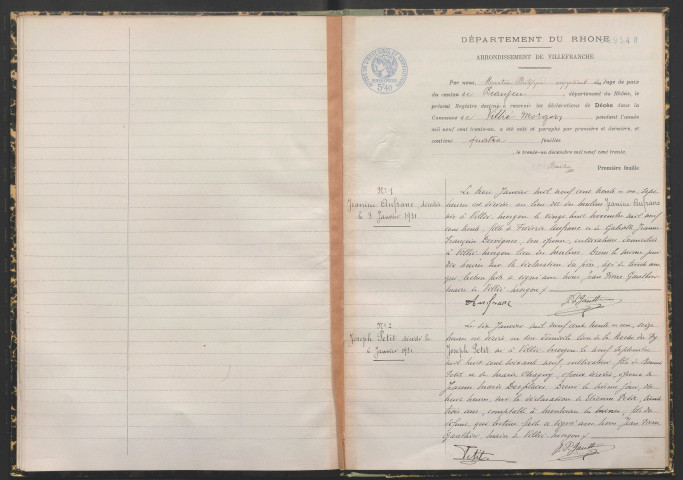 DÉPARTEMENT DU RHONE
ARRONDISSEMENT DE VILLEFRANCHE
Par nous, suppléant du Juge de paix
du canton de Beaujeu, département du Rhône, le
présent Registre destiné a recevoir les déclarations de Décès dans la
Commune de Villié Morgon pendant l'année
mil neuf cent trente-un, a été coté et paraphé par première et dernière, et
contient quatre feuilles
le trente-un décembre mil neuf cent trente.
Première feuille
N° 1
Jeanine Aufranc décédée
le 3 Janvier 1931
Le trois Janvier mil neuf cent trente-un, sept
heures est décédée au lieu dit des moulins Jeanine Aufranc
née à Villié-Morgon le vingt huit novembre mil neuf
cent trente, fille de Aufranc et de Jeanne
Françoise Desvignes, son épouse, cultivateurs domiciliés
à Villié-Morgon lieu des moulins. Dressé le même jour
dix heures sur la déclaration du père, âgé de trente ans
qui, lecture faite a signé avec nous Jean Pierre Gauthier
maire de Villié-Morgon
Aufranc
J.P. Gauthier
N° 2
Joseph Petit décédé le
6 Janvier 1931
Le six Janvier mil neuf cent trente-un, seize
heures est décédé en son domicile lieu de
Joseph Petit né à Villié-Morgon le neuf septembre
mil huit cent soixante neuf, cultivateur, fils de
Petit et de Marie Chagny, époux décédés, époux de
Jeanne Marie Desplaces. Dressé le même jour, dix
huit heures, sur la déclaration de Etienne Petit, trente
trois ans, comptable à, fils du
défunt, qui lecture faite a signé avec nous Jean Pierre
Gauthier, maire de Villié-Morgon
Petit
J.P. Gauthier